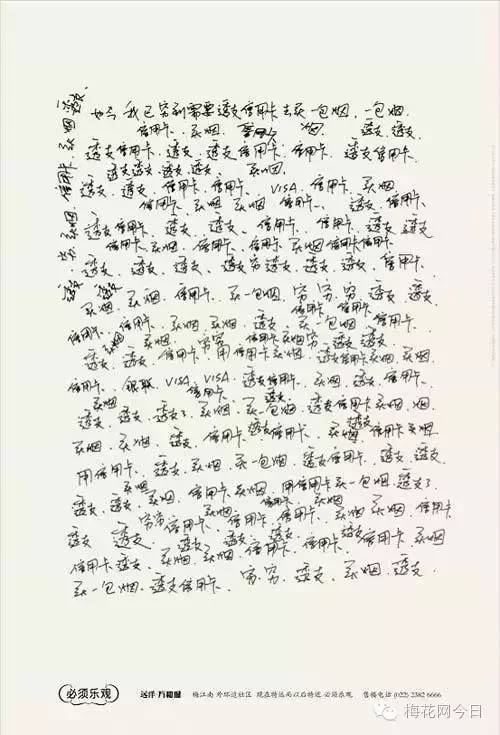 如今 我已穷到需要透支信用卡去买一包烟.一包烟.
信用卡.买烟. 信用卡 烟. 透支.透支.
透支信用卡.透支.透支信用卡.信用卡.透支信用卡.
透支透支.透支.透支. 买烟.
透支.透支.信用卡.信用卡. VISA.信用卡.买烟.
信用卡.买烟.买烟.信用卡. 透支.信用卡.
透支信用卡.透支.透支.信用卡.信用卡.透支.透支
信用卡.买烟.信用卡.信用卡.买烟信用卡信用卡.
透支.透支.透支.透支穷透支.透支.透支.信用卡.
买烟.买烟.信用卡.买一包烟.穷.穷.穷.透支.透支.
信用卡.信用卡
信用卡.信用卡.买烟.买烟.透支.买一包烟.信用卡.
买烟 买烟. 穷穷 信用卡买烟穷.透支.透支.
透支.透支.信用卡.用信用卡买烟.透支信用卡买烟.买烟.
信用卡.银联.VISA.VISA.透支信用卡.买烟.透支.信用卡.
买烟 信用卡. 透支
透支.透支.透支了.买烟.买一包烟.透支信用卡买烟.烟.
买烟.买烟.透支.信用卡透支信用卡.买烟.信用卡买烟
用信用卡.透支.买烟.买一包烟.透支信用卡.透支.透支.
透支.透支.买烟.信用卡.买烟.用信用卡买一包烟.透支了.
穷穷信用卡.买烟.信用卡.信用卡.买烟.买烟.信用卡
透支 透支 透支 透支.透支. 透支
信用卡透支.买烟.买烟.信用卡.信用卡.信用卡.买烟
买一包烟.透支信用卡. 穷.穷.透支.买烟.透支.
透支.
买烟
信用卡.
买烟
穷.
透支 透支
必须乐观
远洋·万和城 梅江南 外环边社区 现在特远而以后特近 必须乐观 售楼电话 (022) 2382 6666
梅花网今日